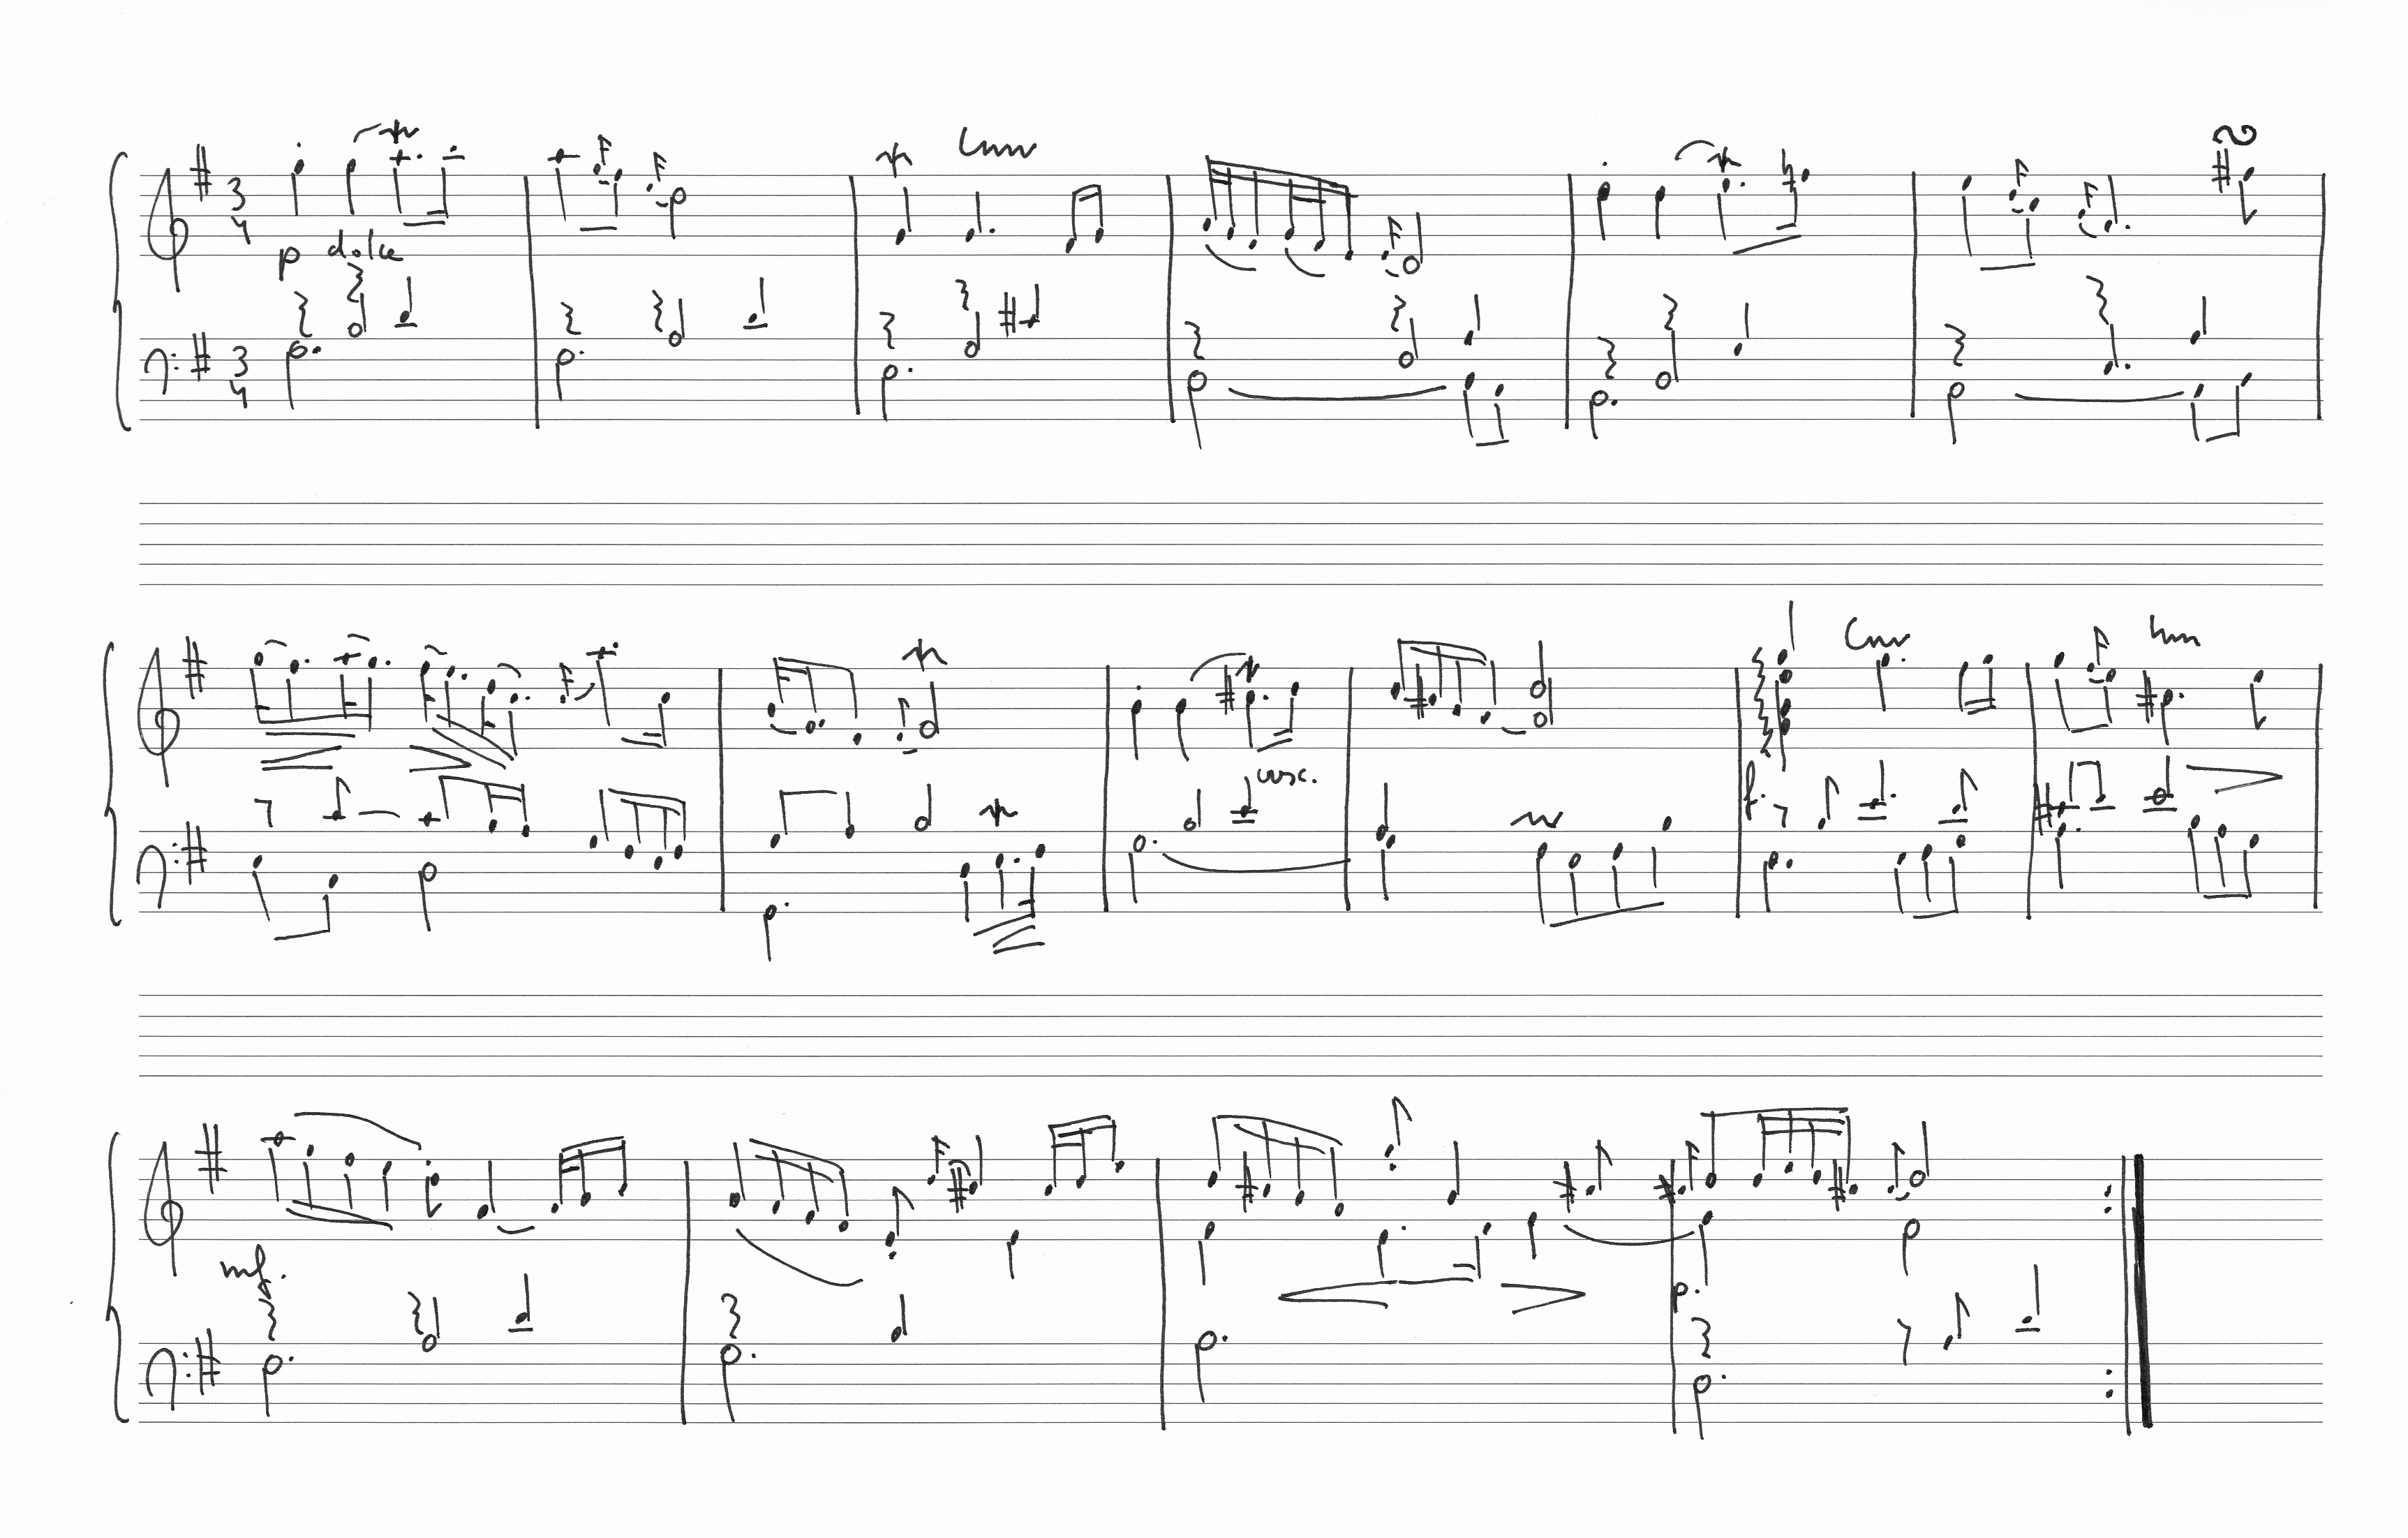 3 4
p dolce
3 4
cresc.
f.
mf.
p.